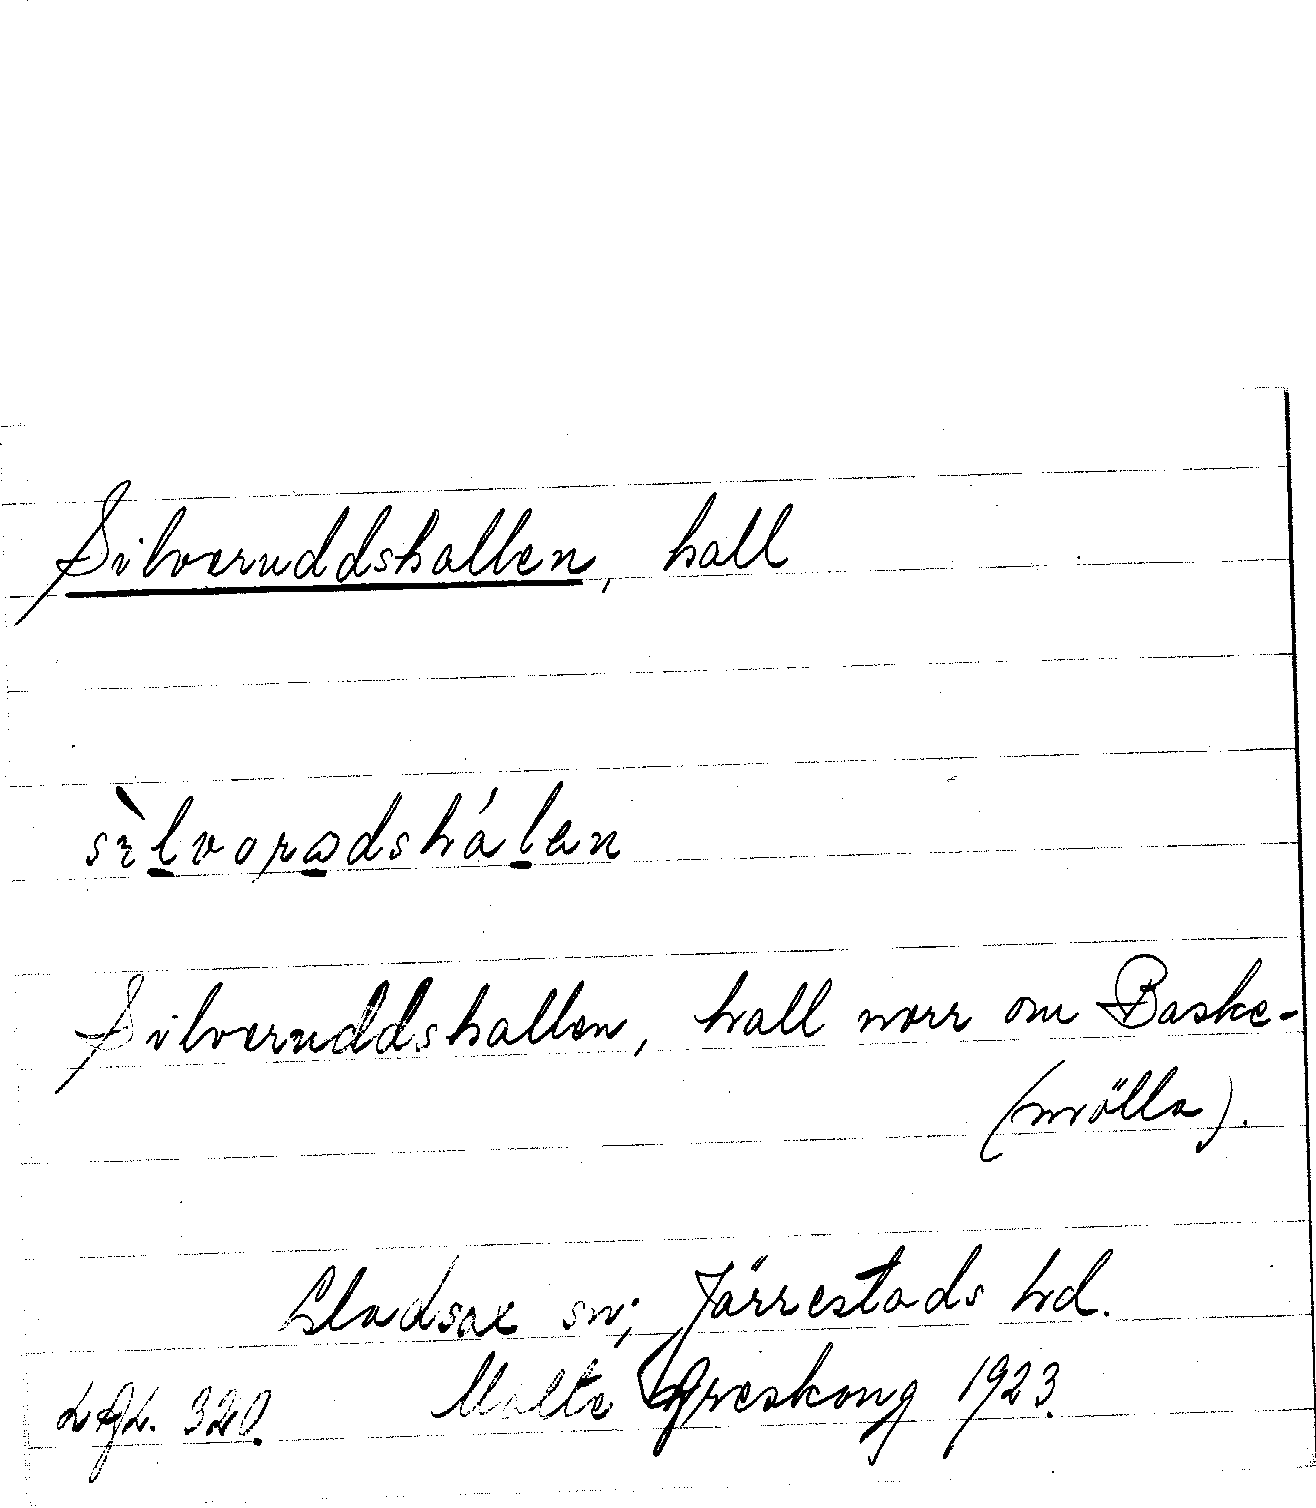 Silveruddshallen, hall
sìlvoradshálan
Silveruddshallen, hall norr om Baske-
(mölla).
Gladsax sn; Järrestads hd.
320. Malte 1923.